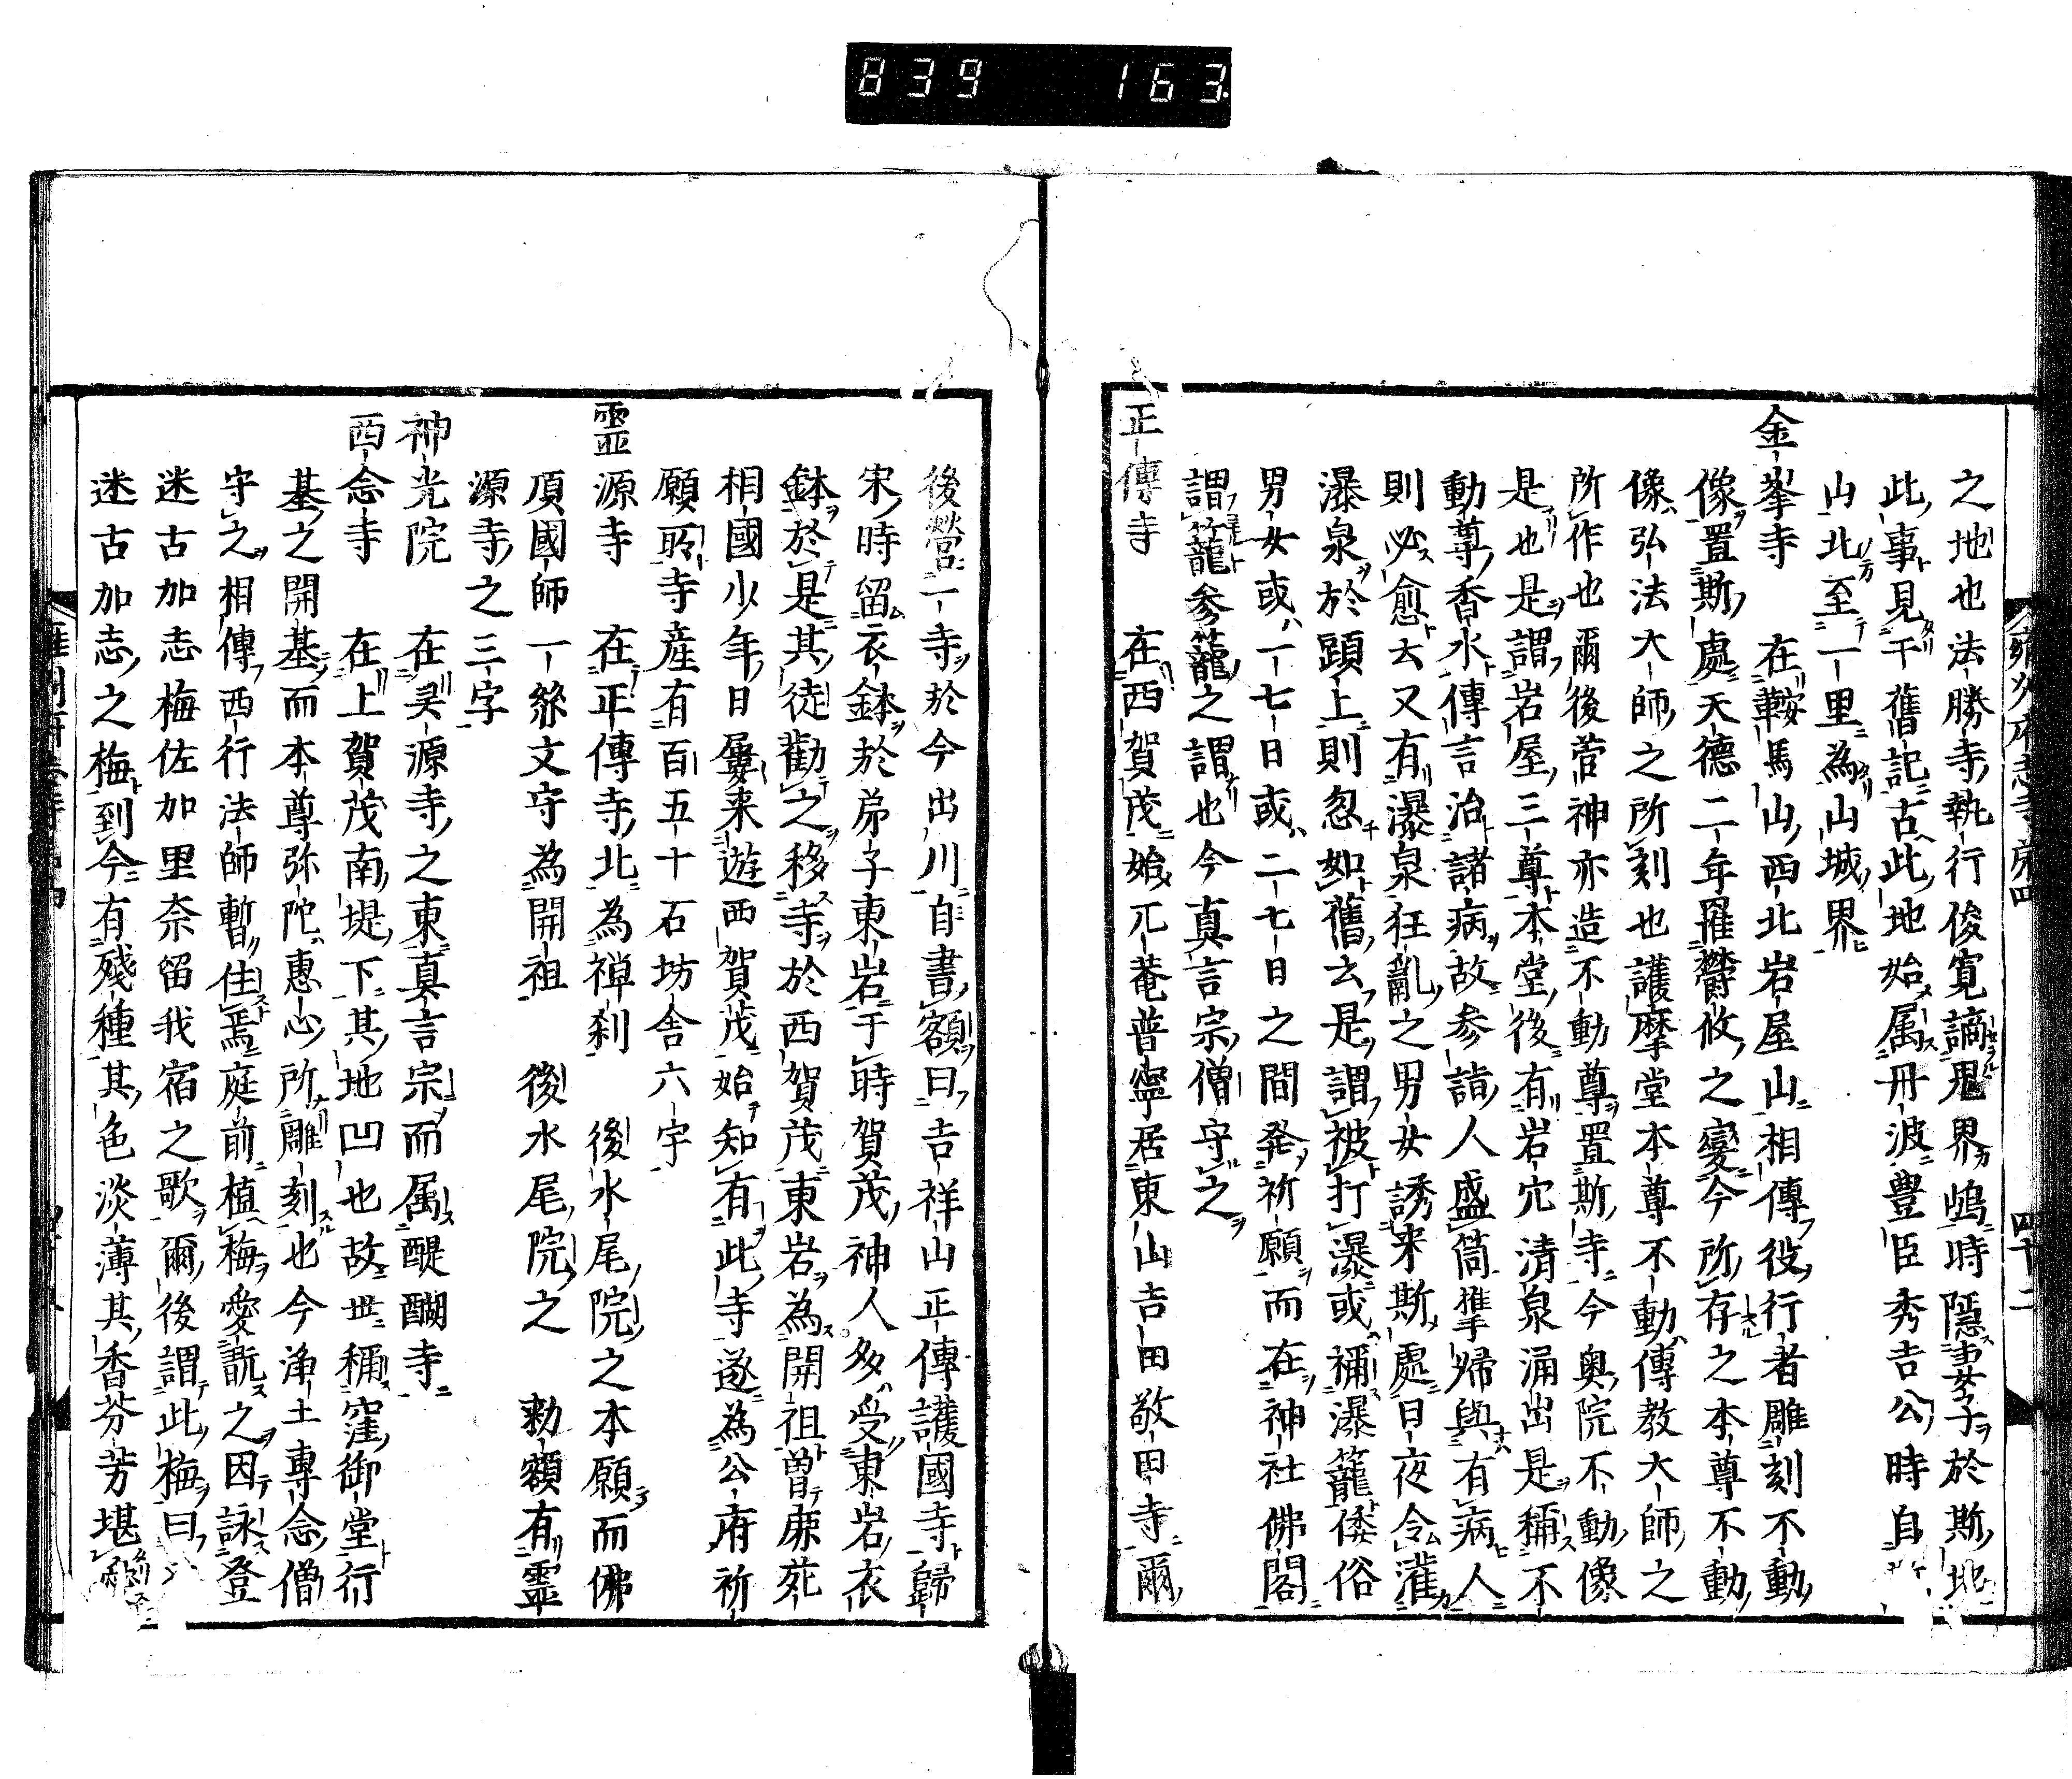 839 163
之地也法勝寺執行俊寛謫鬼界嶋時隱妻子於斯地
此事見干舊記古此地始属丹波豊臣秀吉公時自
山北至一里為山城界
金峯寺 在鞍馬山西北岩屋山相傳役行者雕刻不動
像置斯處天德二年羅欝攸之變今所存之本尊不動
像弘法大師之所刻也護摩堂本尊不動傳教大師之
所作也爾後菅神亦造不動尊置斯寺今奥院不動像
是也是謂岩屋三尊本堂後有岩穴清泉涌出是稱不
動尊香水傳言治諸病故参詣人盛筒挈帰與有病人
則必愈云又有瀑泉狂亂之男女誘来斯處日夜令灌
瀑泉於頭上則忽如舊云是謂被打瀑或禰瀑籠倭俗
男女或一七日或二七日之間発祈願而在神社佛閣
謂籠参籠之謂也今真言宗僧守之
正傳寺 在西賀茂始兀菴普寧居東山吉田敬田寺爾
後營一寺於今出川自書額曰吉祥山正傳護國寺歸
宋時留衣鉢於弟子東岩于時賀茂神人多受東岩衣
鉢於是其徒勸之移寺於西賀茂東岩為開祖曽鹿苑
相國少年日屢来遊西賀茂始知有此寺遂為公府祈
願所寺産有百五十石坊舎六宇
靈源寺 在正傳寺北為禅刹 後水尾院之本願而佛
頂國師一絲文守為開祖 後水尾院之 勅額有靈
源寺之三字
神光院 在灵源寺之東真言宗而属醍醐寺
西念寺 在上賀茂南堤下其地凹也故世稱窪御堂行
基之開基而本尊弥陀惠心所雕刻也今淨土專念僧
守之相傳西行法師暫住焉庭前植梅愛翫之因詠登
迷古加志梅佐加里奈留我宿之歌爾後謂此梅曰
迷古加志之梅到今有殘種其色淡薄其香芬芳堪